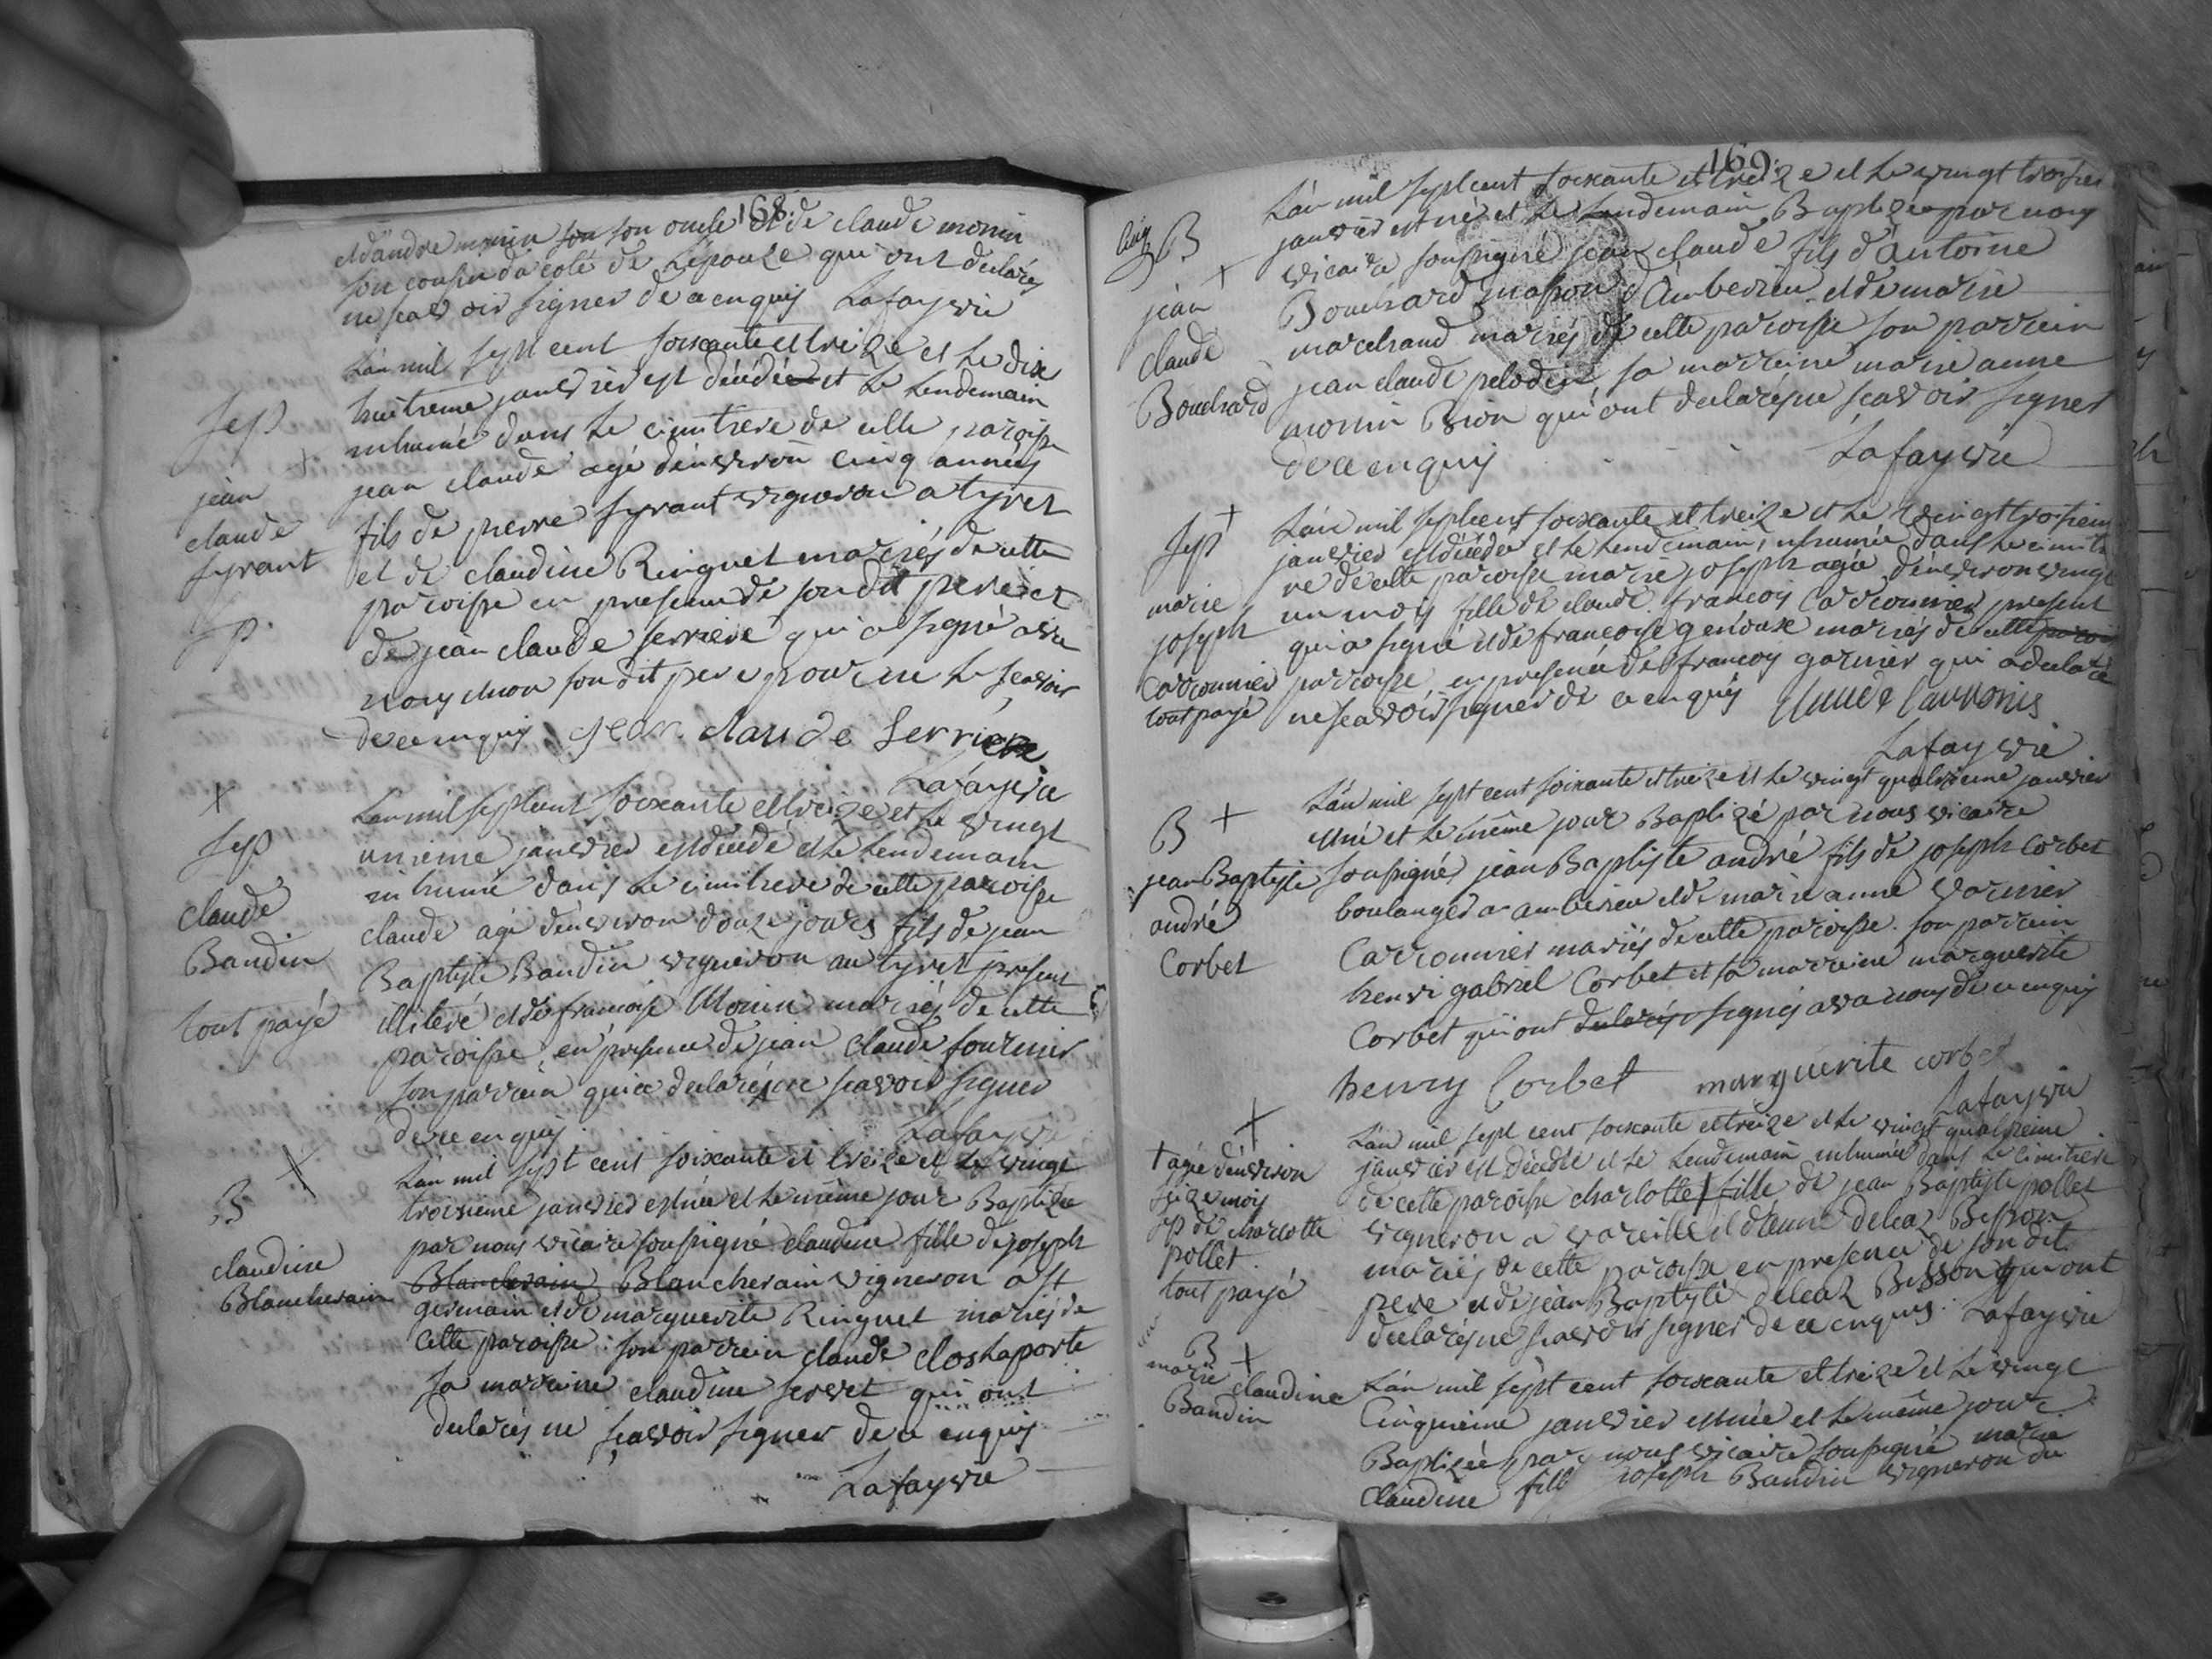 168.
et d'andre monin son son oncle et de claude monin
son cousin du coté de l'epouze qui ont declarés
ne scavoir signer de ce enquis Lafay vic
L'an mil sept cent soixante et treize et le dix
huitieme janvier est décédé et le lendemain
inhumé dans le cimitiere de cette paroisse
jean claude agé d'environ cinq années
fils de pierre syrant vigneron a tyret
et de claudine Ringuet mariés de cette
paroisse en presence de son dit pere et
de jean claude serriere qui a signé avec
nous et non son dit pere pour ne le scavoir
de ce enquis jean claude serriere
Lafay vic
Sep
jean
claude
syrant
p.
L'an mil sept cent soixante et treize et le vingt
unieme janvier est décédé et le lendemain
inhumé dans le cimitiere de cette paroisse
claude agé d'environ douze jours fils de jean
Baptiste Baudin vigneron au tyret present
illiteré et de francoise Monin mariés de cette
paroisse, en presence de jean claude fournier
son parrain qui a declaré ne scavoir signer
de ce enquis Lafay vic
+
Sep
claude
Baudin
tout payé
L'an mil sept cent soixante et treize et le vingt
troisieme janvier est née et le même jour Baptizée
par nous vicaire soussigné claudine fille de joseph
Blancherain Blancherain vigneron a st
germain et de marguerite Ringuet mariés de
cette paroisse. son parrain claude claslaporte
sa marraine claudine servet qui ont
declarés ne scavoir signer de ce enquis
Lafay vic
+
B
claudine
Blancherain
169.
L'an mil sept cent soixante et treize et le vingt troisieme
janvier est né et le lendemain Baptizé par nous
vicaire soussigné jean claude fils d'Antoine
Bouchard masson d'Amberieu et de marie
marchand mariés de cette paroisse son parrain
jean claude pelodin, sa marraine marie anne
monin Brion qui ont declarés ne scavoir signer
de ce enquis Lafay vic
B
+
jean
claude
Bouchard
L'an mil sept cent soixante et treize et le vingt troisieme
janvier est décédée et le lendemain inhumée dans le cimitie
re de cette paroisse marie joseph agée d'environ vingt
un mois fille de claude francois Carronnier present
qui a signé et de francoise genoux mariés de cette parois
paroisse en presence de francois garnier qui a declaré
ne scavoir signer de ce enquis
Lafay vic
+
Sep
marie
joseph
Carronnier
tout payé
L'an mil sept cent soixante et treize et le vingt quatrieme janvier
est né et le même jour Baptizé par nous vicaire
soussigné jean Baptiste andré fils de joseph Corbet
boulanger a amberieu et de marie anne varinier
Carronnier mariés de cette paroisse. son parrain
henri gabriel Corbet et sa marraine marguerite
Corbet qui ont declarés signés avec nous de ce enquis
henry Corbet marguerite corbet
Lafay vic
B +
jean Baptiste
andré
Corbet
L'an mil sept cent soixante et treize et le vingt quatrieme
janvier est décédé et le lendemain inhumée dans le cimitiere
de cette paroisse charlotte + fille de jean Baptiste pollet
vigneron a vareille et d'anne deleaz Besson
mariés de cette paroisse en presence de son dit
pere et de jean Baptiste deleaz Besson qui ont
declarés ne scavoir signer de ce enquis. Lafay vic
+
+ agée d'environ
seize mois
sep de charlotte
pollet
tout payé
L'an mil sept cent soixante et treize et le vingt
Cinquieme janvier est née et le même jour
Baptizée par nous vicaire soussigné marie
claudine fille joseph Baudin vigneron du
B +
marie claudine
Baudin